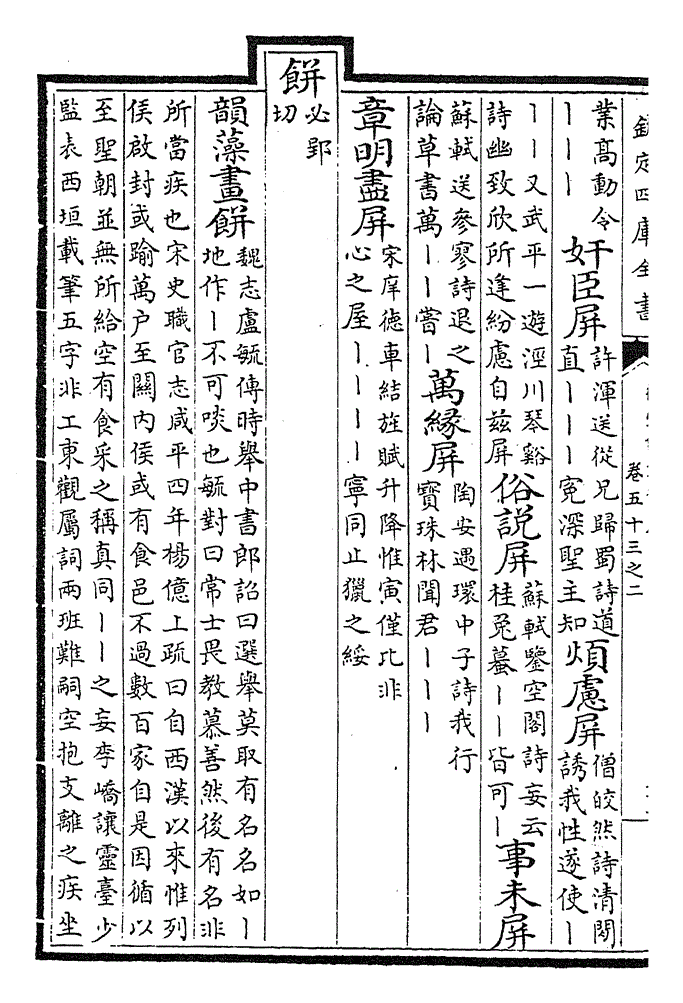 欽定四庫全書
卷五十三之二
業髙動令
｜｜｜
奸臣屏
許渾送從兄歸蜀詩道
直｜｜｜寃深聖主知
煩慮屏
僧皎然詩清閟
誘我性遂使｜
｜｜又武平一遊涇川琴谿
詩幽致欣所逢紛慮自兹屏
俗説屏
蘇軾鑒空閣詩妄云
桂兔蟇｜｜皆可｜
事未屏
蘇軾送參寥詩退之
論草書萬｜｜嘗｜
萬緣屏
陶安遇環中子詩我行
寶珠林聞君｜｜｜
章明盡屏
宋庠德車結旌賦升降惟寅僅比非
心之屋｜｜｜｜寧同止獵之綏
餅
必郢
切
韻藻畫餅
魏志盧毓傳時舉中書郎詔曰選舉莫取有名名如｜
地作｜不可啖也毓對曰常士畏教慕善然後有名非
所當疾也宋史職官志咸平四年楊億上疏曰自西漢以來惟列
侯啟封或踰萬户至關内侯或有食邑不過數百家自是因循以
至聖朝並無所給空有食采之稱真同｜｜之妄李嶠讓靈臺少
監表西垣載筆五字非工東觀屬詞兩班難嗣空抱支離之疾坐